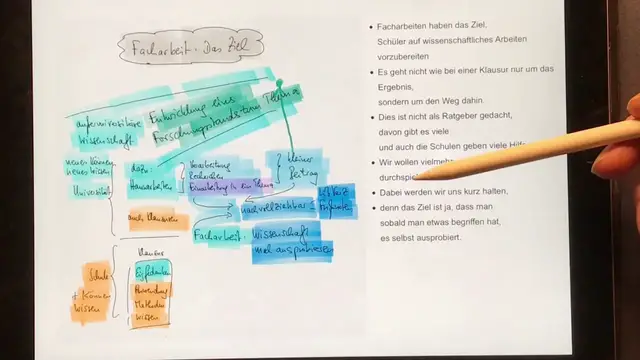 Facharbeit. Das Ziel
außeruniversitäre
Wissenschaft
Entwicklung eines
Forschungsstands zum Thema
neues Können
neues Wissen
Universität
dazu:
Hausarbeiten
Vorarbeitung
Recherchen
Einarbeitung in ein Thema
kleiner
Beitrag
nachvollziehbar
auch Klausuren
Facharbeit.
Wissenschaft
mal ausprobieren
Schule
+ Können
Wissen
Klausur
Anwendung
Methoden
Wissen
• Facharbeiten haben das Ziel,
Schüler auf wissenschaftliches Arbeiten
vorzubereiten
• Es geht nicht wie bei einer Klausur nur um das
Ergebnis,
sondern um den Weg dahin.
• Dies ist nicht als Ratgeber gedacht,
davon gibt es viele
und auch die Schulen geben viele
• Wir wollen
• Dabei werden wir uns kurz halten,
• denn das Ziel ist ja, dass man
sobald man etwas begriffen hat,
es selbst ausprobiert.